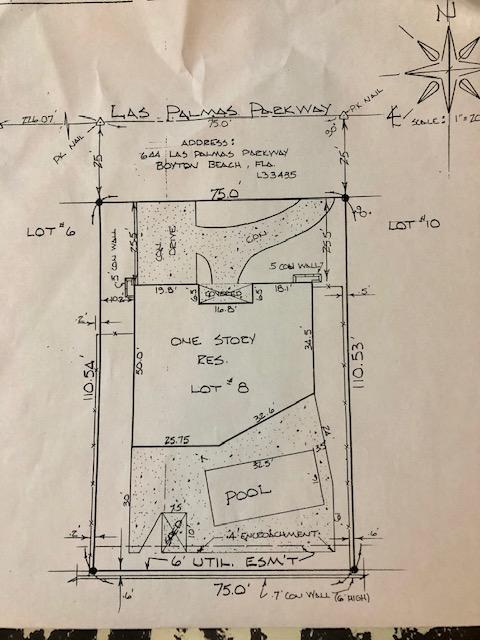 N
LAS PALMAS PARKWAY
226.07'
75.0'
PK NAIL
PK NAIL
SCALE: 1"=20
25'
25'
90°
ADDRESS:
644 LAS PALMAS PARKWAY
BOYTON BEACH, FLA.
33435
75.0'
90°
LOT #6
LOT #10
25.5'
CON DRIVE
CON
25.5
.5' CON WALL
.5 CON WALL
10.2'
19.8'
6.5
COVERED
6.5
18.1'
16.8'
.5'
.2'
ONE STORY
RES.
LOT #8
50.0'
34.5
110.54'
110.53'
32.6'
25.75
32.5'
POOL
30'
7.5
10'
.4' ENCROACHMENT
.2'
.6'
6' UTIL. ESM'T
75.0'
.6'
.7' CON WALL (6' HIGH)